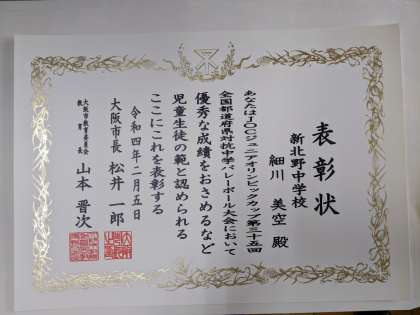 表彰状
新北野中学校
細川 美空 殿
あなたはJOCジュニアオリンピックカップ第三十五回
全国都道府県対抗中学バレーボール大会において
優秀な成績をおさめるなど
児童生徒の範と認められる
ここにこれを表彰する
令和四年二月五日
大阪市長 松井 一郎
大阪市教育委員会
教育長 山本 晋次